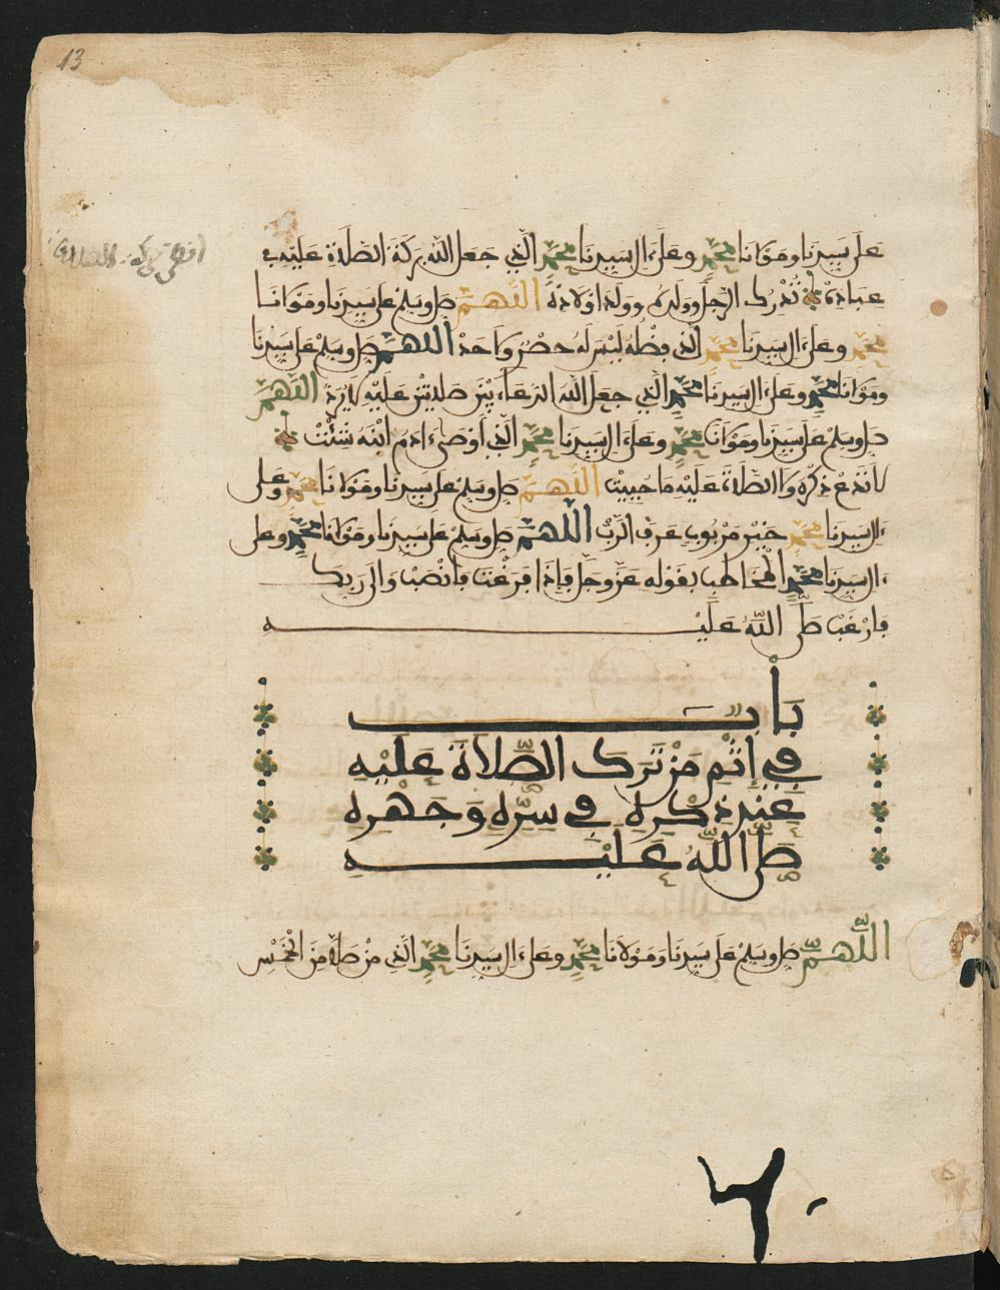 13
على سيدنا ومولانا محمد وعلى ءال سيدنا محمد الذي جعل الله بركة الصلاة عليه في
عباده تدرك الرجل وولده وولد اولاده اللهم صل وسلم على سيدنا ومولانا
محمد وعلى ءال سيدنا محمد الذي فضله ليس له حصر ولا حد اللهم صل وسلم على سيدنا
ومولانا محمد وعلى ءال سيدنا محمد الذي جعل الله الدعاء بين صلاتين عليه لا يرد اللهم
صل وسلم على سيدنا ومولانا محمد وعلى ءال سيدنا محمد الذي أوصى ءادم ابنه شئت
لا تدع ذكره والصلاة عليه ما حييت اللهم صل وسلم على سيدنا ومولانا محمد وعلى
ءال سيدنا محمد خير مربوب عرف الرب اللهم صل وسلم على سيدنا ومولانا محمد وعلى
ءال سيدنا محمد المخاطب بقوله عز وجل فإذا فرغت فانصب والى ربك
فارغب صلى الله عليه
باب
في إثم من ترك الصلاة عليه
عند ذكره في سره وجهره
صلى الله عليه
اللهم صل وسلم على سيدنا ومولانا محمد وعلى ءال سيدنا محمد الذي من صلاه من الخمس